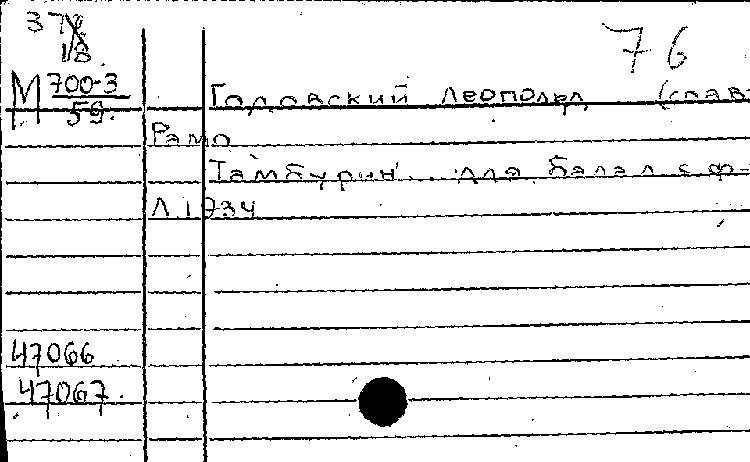 76
18.
М 700-3
59.
Годовский Леопольд (спав
Рамо
Тамбурин. для балал с ф-
Л 1934
47066
47067.